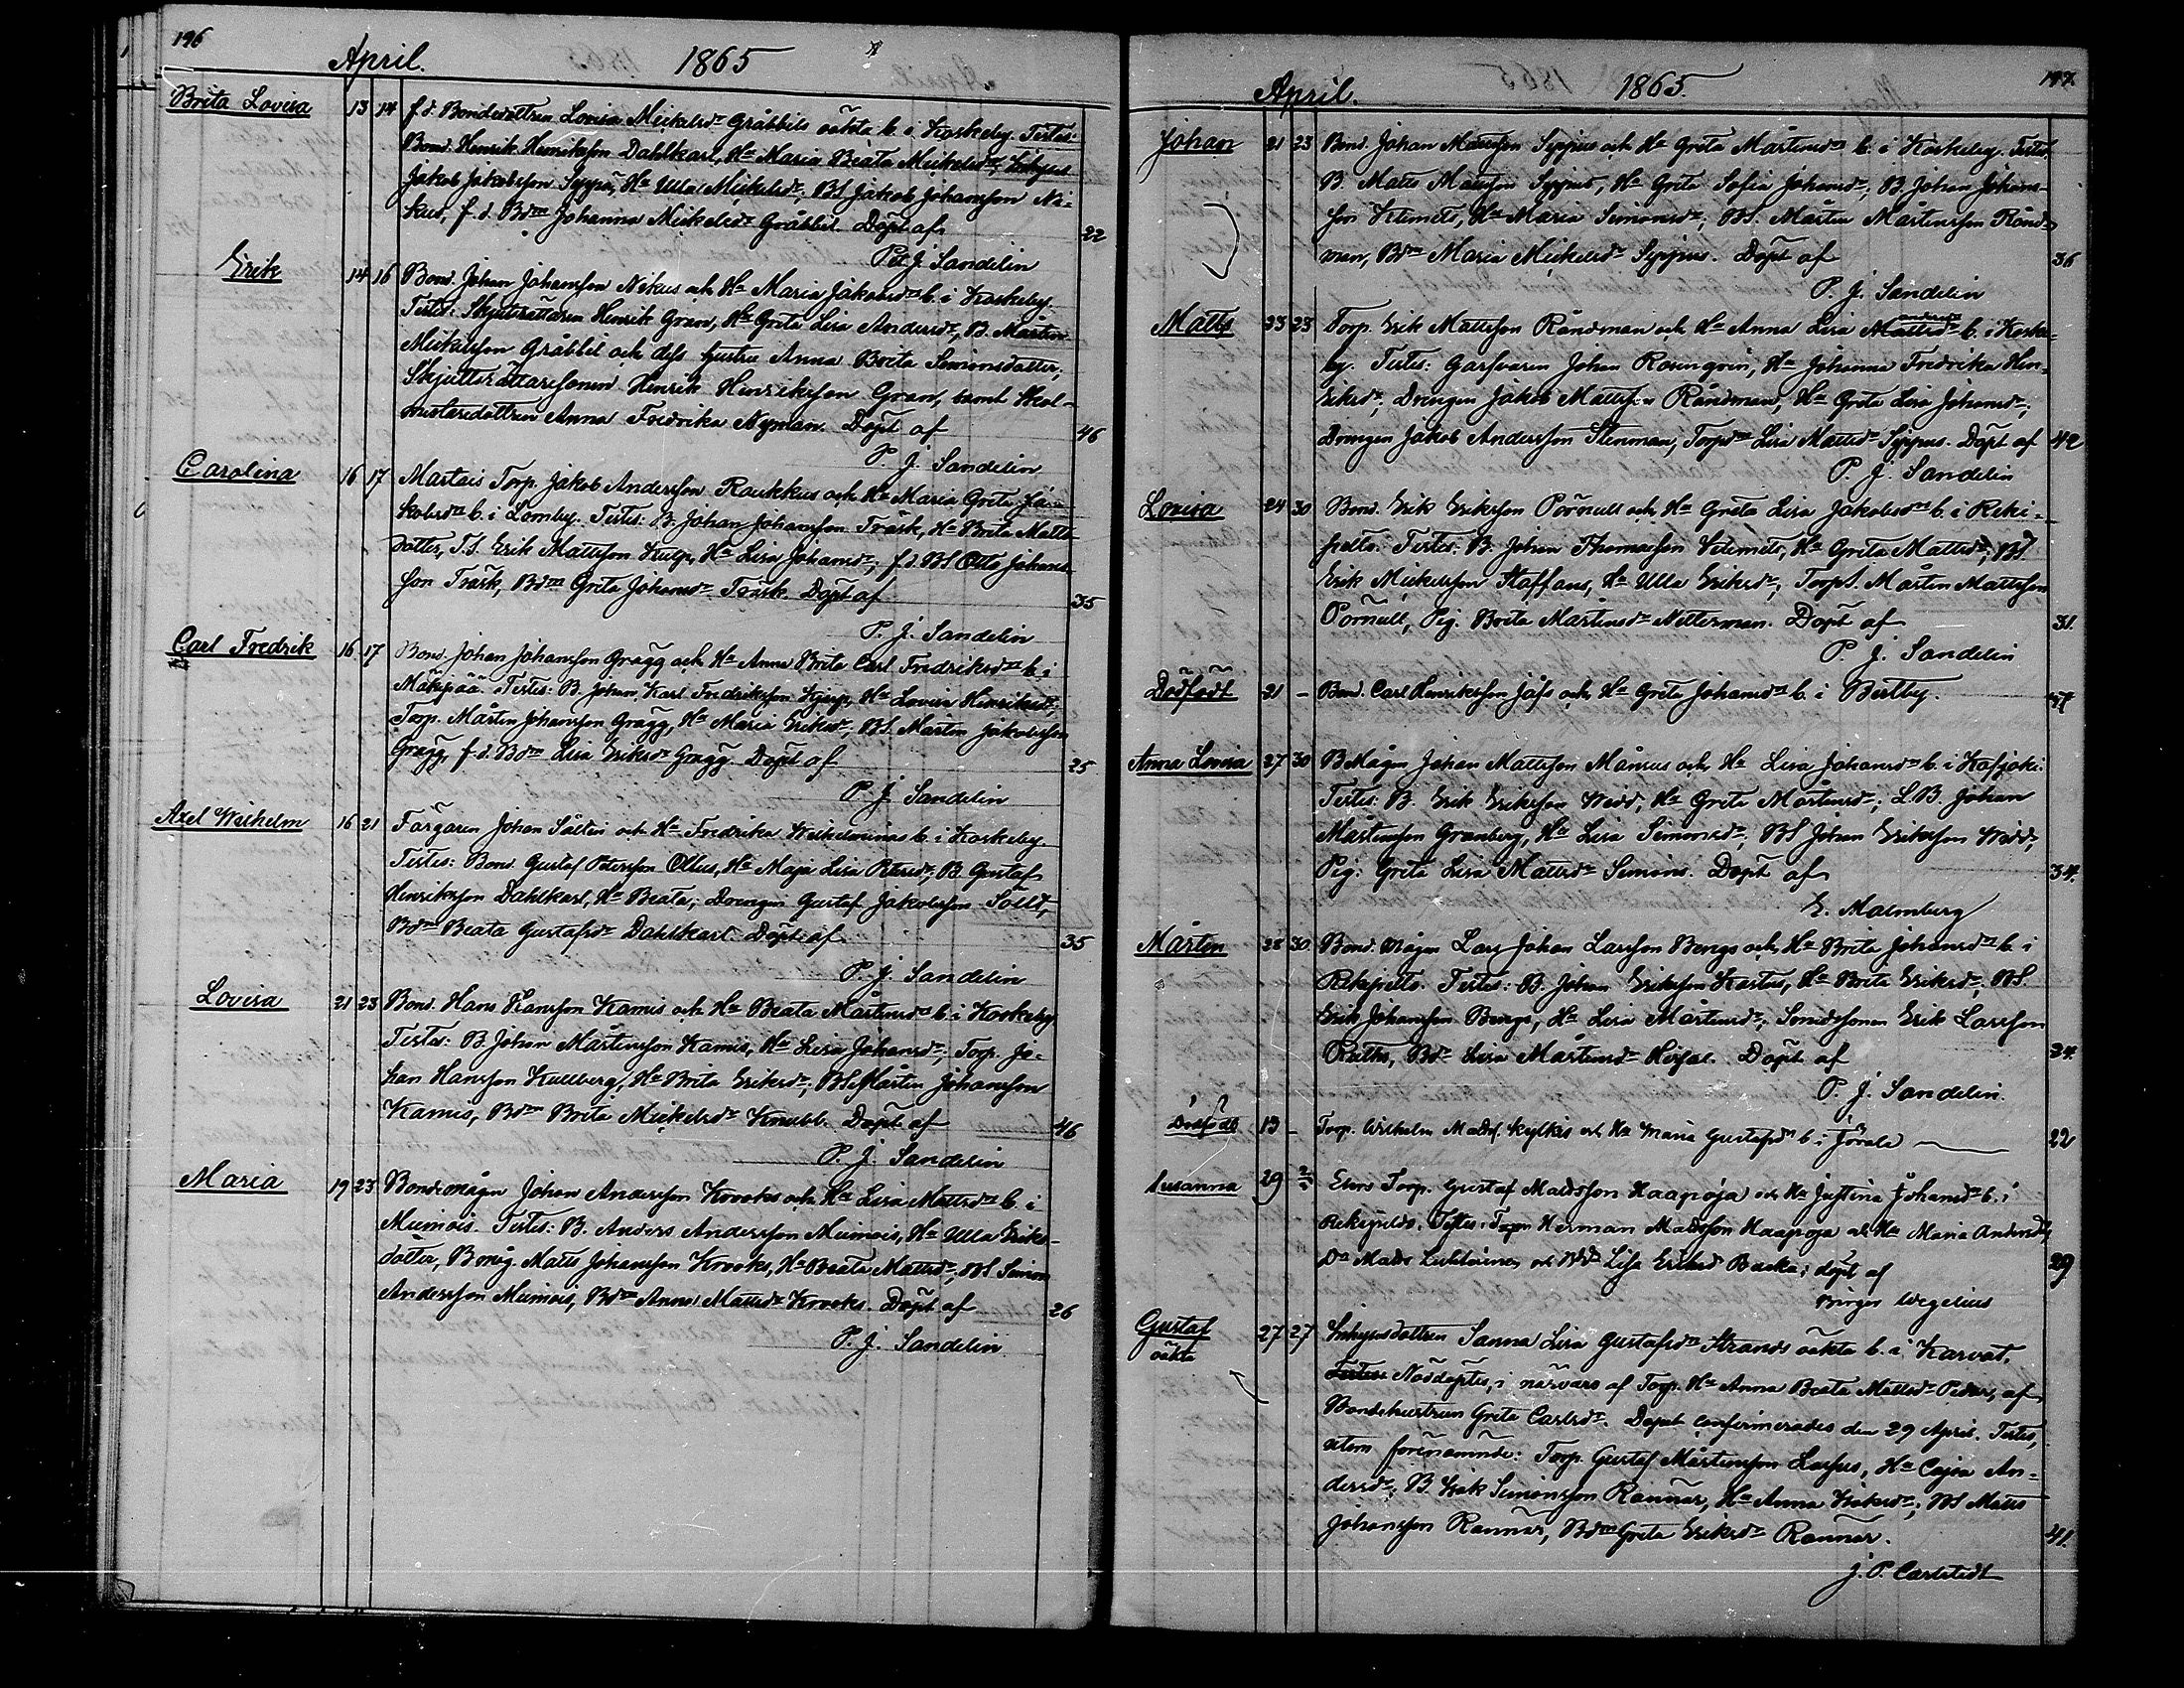 196
April. 1865
Brita Lovisa 13 14 f.d. Bondedottren Lovisa Mickelsdr Gråbbils oäkta b. i Koskeby. Testes:
Bond. Henrik Henriksson Dahlkarl, Ha Maria Beata Mickelsdr, Inhyses
Jakob Jakobsson Syppo, Ha Ulla Mickelsdr, BS Jakob Johansson Ni-
kus, f.d. Bdm Johanna Mickelsdr Gråbbil. Döpt af 22
Pet J. Sandelin
Erik 14 16 Bond. Johan Johansson Nikus och Ha Maria Jakobsdr b. i Koskeby.
Testes: Skjutsrättaren Henrik Gran, Ha Greta Lisa Andersdr, B. Mårten
Mickelsson Gråbbil och dess hustru Anna Brita Simonsdotter,
Skjutsrättaresonen Henrik Henriksson Gran, samt Skol-
mästaredottren Anna Fredrika Nyman. Döpt af 46
P. J. Sandelin
Carolina 16 17 Martois Torp. Jakob Andersson Raukkus och Ha Maria Greta Ja-
kobsdr b. i Lomby. Testes: B. Johan Johansson Träsk, Ha Brita Matts-
dotter, T.S. Erik Mattsson Kulp, Ha Lisa Johansdr, f.d. BS Otto Johans-
son Träsk, Bdm Greta Johansdr Träsk. Döpt af 35
P. J. Sandelin
Carl Fredrik 16 17 Bond. Johan Johansson Grägg och Ha Anna Brita Carl Fredriksdr b. i
Mäkipää. Testes: B. Johan Karl Fredriksson Kjerp, Ha Lovisa Henriksdr,
Torp. Mårten Johansson Grägg, Ha Maria Eriksdr, BS. Mårten Jakobsson
Grägg, f.d. Bdm Lisa Eriksdr Grägg. Döpt af 25
P. J. Sandelin
Axel Wilhelm 16 21 Färgaren Johan Saltin och Ha Fredrika Wilhelminas b. i Koskeby.
Testes: Bond. Gustaf Petersson Ollus, Ha Maja Lisa Petersdr, B. Gustaf
Henriksson Dahlkarl, Ha Beata, Drengen Gustaf Jakobsson Tolld,
Bdm Beata Gustafsdr Dahlkarl. Döpt af 35
P. J. Sandelin
Lovisa 21 23 Bond. Hans Hansson Kamis och Ha Beata Mårtensdr b. i Koskeby
Testes: B. Johan Mårtensson Kamis, Ha Lisa Johansdr, Torp. Jo-
han Hansson Kullberg, Ha Brita Eriksdr, BS Mårten Johansson
Kamis, Bdm Brita Mickelsdr Knubb. Döpt af 46
P. J. Sandelin
Maria 19 23 Bondemågen Johan Andersson Krooks och Ha Lisa Mattsdr b. i
Miemois. Testes: B. Anders Andersson Miemois, Ha Ulla Eriks-
dotter, Bmåg. Matts Johansson Krooks, Ha Beata Mattsdr, BS Simon
Andersson Miemois, Bdm Anna Mattsdr Krooks. Döpt af 26
P. J. Sandelin
197.
April. 1865.
Johan 21 23 Bond. Johan Mattsson Syppus och Ha Greta Mårtensdr b. i Koskeby. Testes:
B. Matts Mattsson Syppus, Ha Greta Sofia Johansdr, B. Johan Johans-
son Klemets, Ha Maria Simonsdr, BS. Mårten Mårtensson Rånd-
man, Bdm Maria Mickelsdr Syppus. Döpt af 36
P. J. Sandelin
Matts 23 23 Torp. Erik Mattsson Råndman och Ha Anna Lisa Mattsdr Andersdr b. i Koske-
by. Testes: Garfvaren Johan Rosenqvist, Ha Johanna Fredrika Hen-
riksdr, Drengen Jakob Mattsson Råndman, Ha Greta Lisa Johansdr,
Drengen Jakob Andersson Stenman, Torpdm Lisa Mattsdr Syppus. Döpt af 42
P. J. Sandelin
Lovisa 24 30 Bond. Erik Eriksson Pörnull och Ha Greta Lisa Jakobsdr b. i Reki-
pelto. Testes: B. Johan Thomasson Klemets, Ha Greta Mattsdr, BS
Erik Mickelsson Staffans, Ha Ulla Eriksdr, TorpS. Mårten Mattsson
Pörnull, Pig. Brita Mårtensdr Netterman. Döpt af 31.
P. J. Sandelin
Dödfödt 21 - Bond. Carl Henriksson Jåfs och Ha Greta Johansdr b. i Bertby.
Anna Lovisa 27 30 BMågen Johan Mattsson Månsus och Ha Lisa Johansdr b. i Kasjoki.
Testes: B. Erik Eriksson Wedd, Ha Greta Mårtensdr, L.B. Johan
Mårtensson Granberg, Ha Lisa Simonsdr, BS Johan Eriksson Wedd,
Pig: Greta Lisa Mattsdr Simons. Döpt af 34.
E. Malmberg
Mårten 28 30 Bond. mågen Lars Johan Larsson Bengs och Ha Brita Johansdr b. i
Rekipelto. Testes: B. Johan Eriksson Kastus, Ha Brita Eriksdr, BS.
Erik Johansson Bengs, Ha Lisa Mårtensdr, Smedsonen Erik Larsson
Bdr Lisa Mårtensdr Döpt af 24.
P. J. Sandelin.
Dödfödt 19 - Torp. Wilhelm Kylkis och Ha Maria Gustafsdr b. i Jörala 22
Susanna 29 Torp. Gustaf Mattsson Haapoja och Ha Justina Johansdr b. i
Rekipeldo. Testes: Torp. Herman Mattsson Haapoja och Ha Maria Andersdr,
Matts och Lisa Eriksd Backa; döpt af 29
Birger Wegelius
Gustaf 27 27 Inhysesdottren Sanna Lisa Gustafsdr Strands oäkta b. i Karvat.
oäkta
Testes: Nöddöptes, i närvaro af Torp. Ha Anna Beata Mattsdr Peder, af
Bondehustrun Greta Carlsdr. Dopet confirmerades den 29 April. Testes,
utom förenämnde: Torp. Gustaf Mårtensson Lassus, Ha Cajsa An-
dersdr, B. Isak Simonsson Rannar, Ha Anna Isaksdr, BS Matts
Johansson Rannar, Bdm Greta Eriksdr Rannar. 41.
J. P. Carlstedt